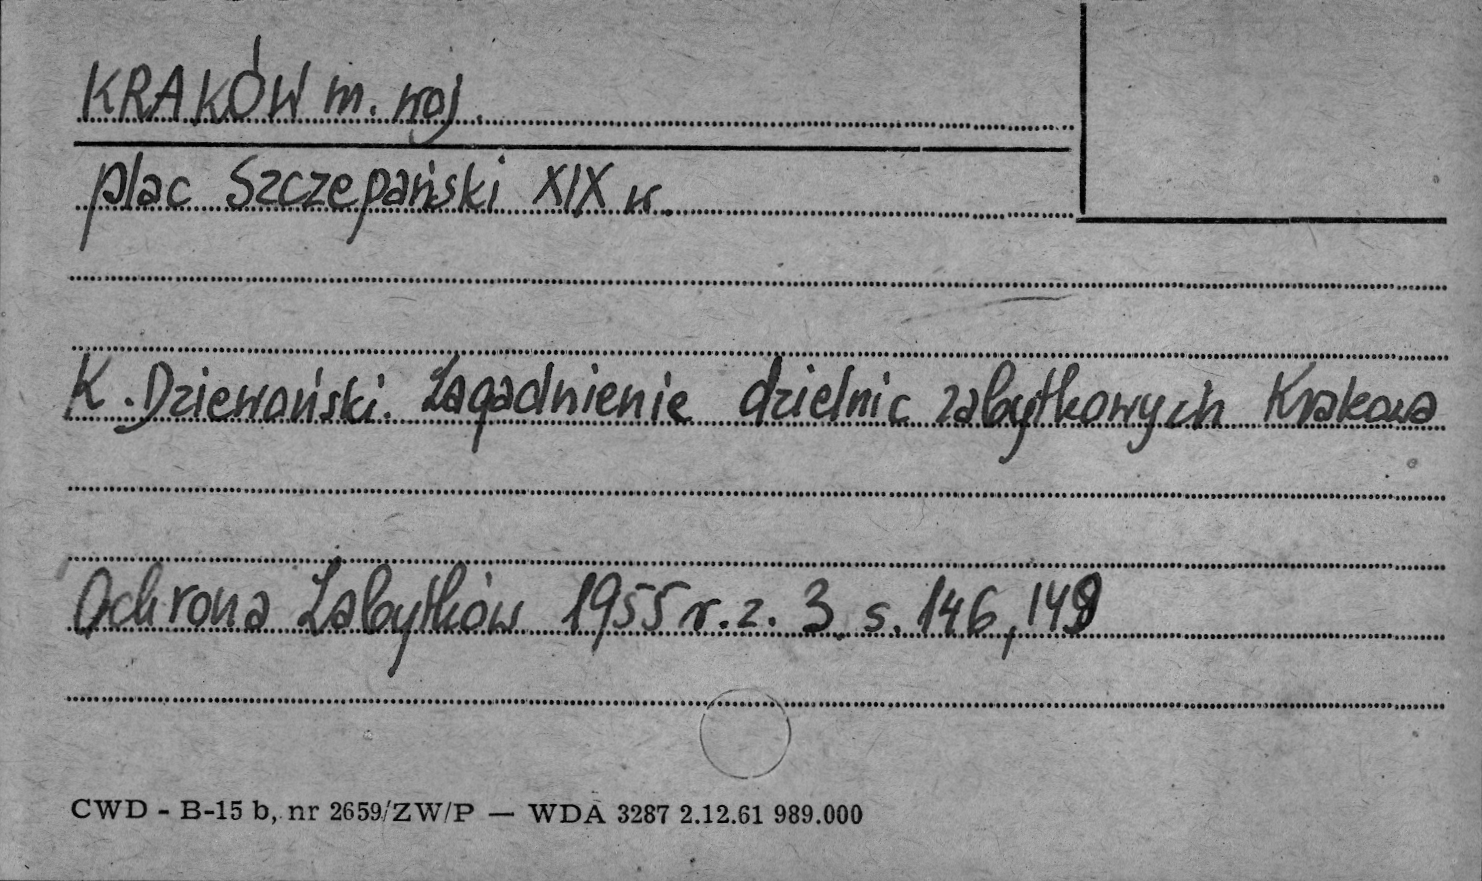 KRAKÓW m. woj.
plac Szczepański XIX w.
K. Dziewoński. Zagadnienie dzielnic zabytkowych Krakowa
Ochrona Zabytków 1955 r. z. 3 s. 146,
CWD - B-15 b, nr 2659/ZW/P — WDA 3287 2.12.61 989.000